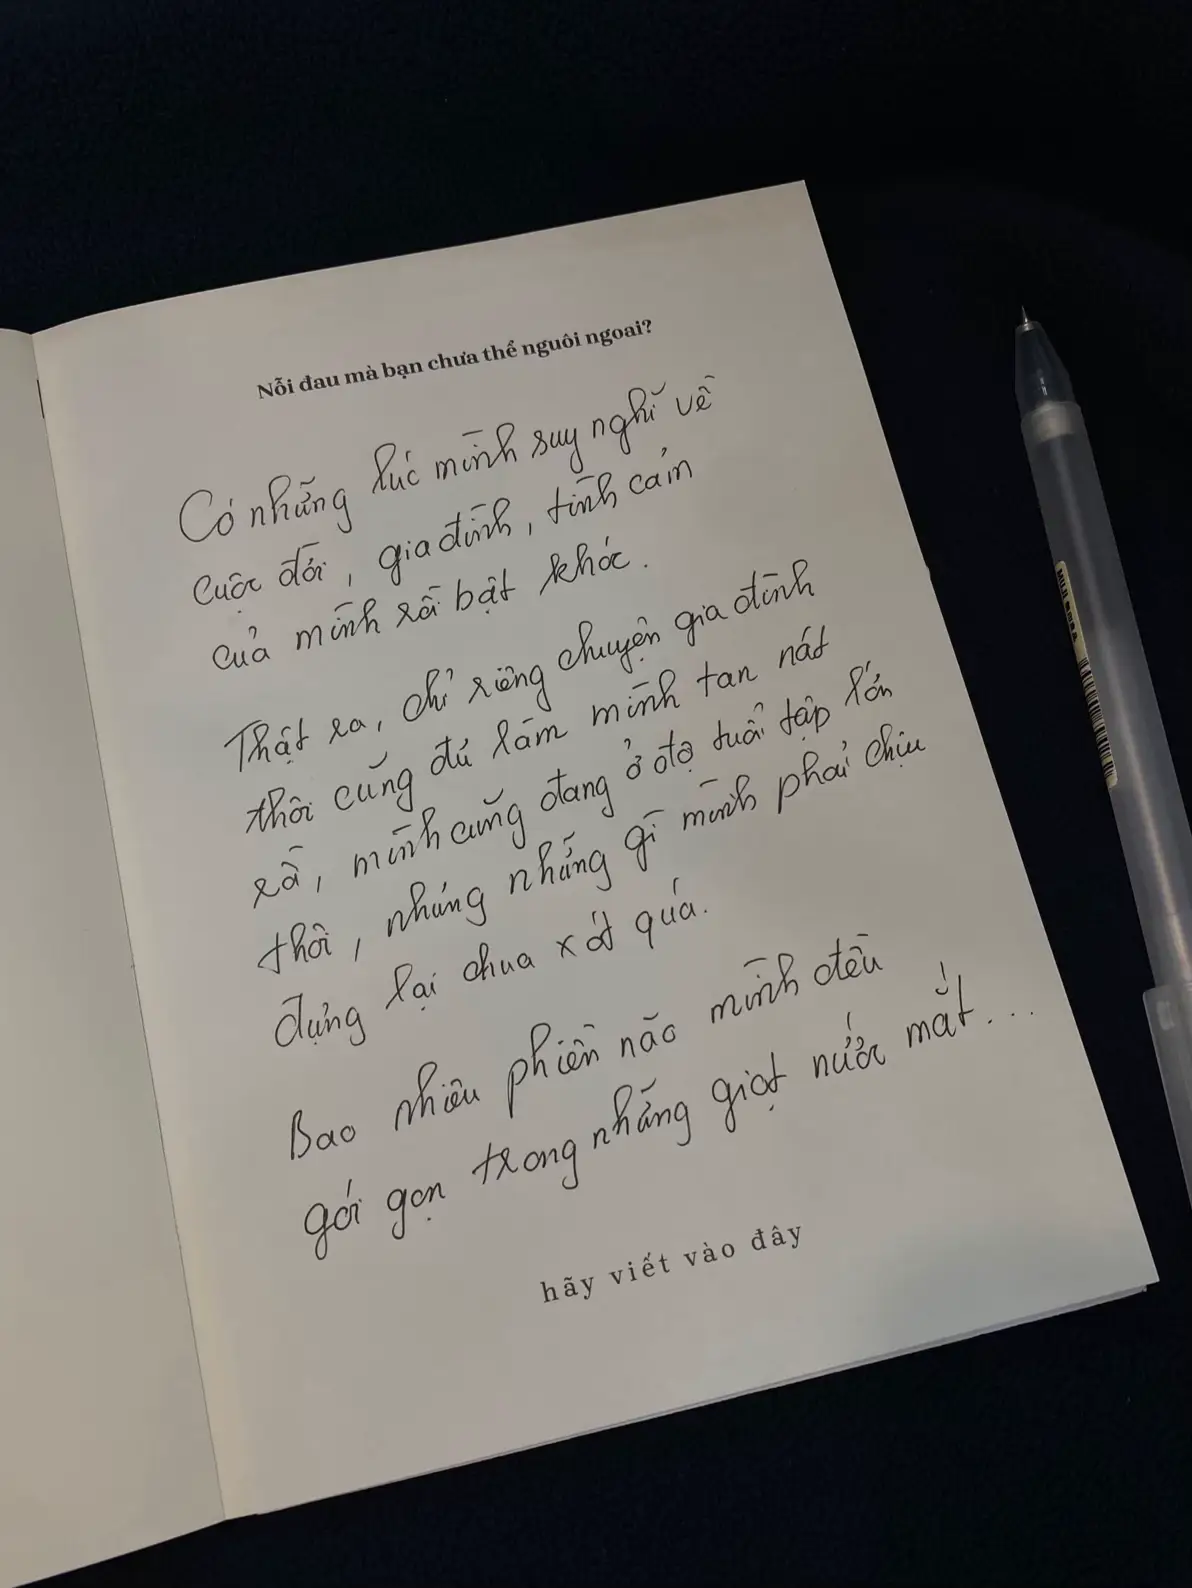 Nỗi đau mà bạn chưa thể nguôi ngoai?
Có những lúc mình suy nghĩ về
cuộc đời, gia đình, tình cảm
của mình rồi bật khóc.
Thật ra, chỉ riêng chuyện gia đình
thôi cũng đủ làm mình tan nát
rồi, mình cũng đang ở độ tuổi tập lớn
thôi, nhưng những gì mình phải chịu
đựng lại chua xót quá.
Bao nhiêu phiền não mình đều
gói gọn trong những giọt nước mắt...
hãy viết vào đây
MUJI